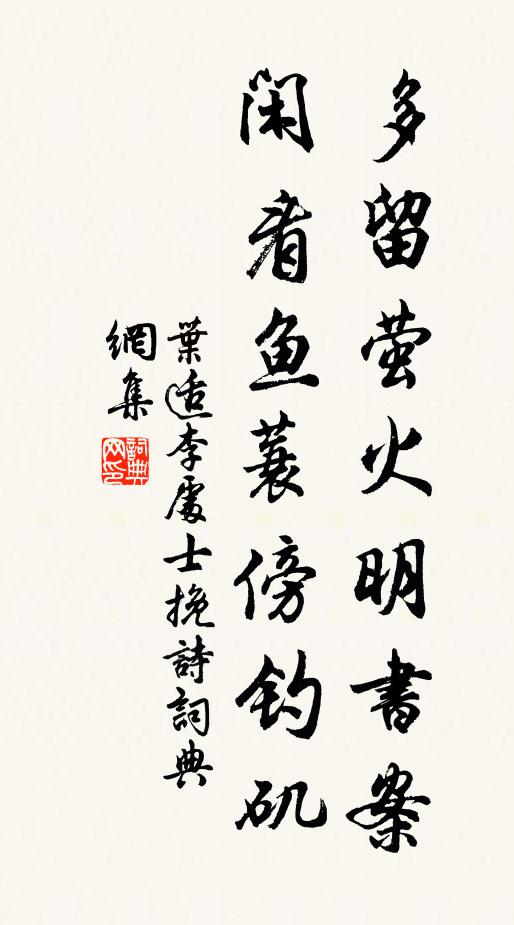 多留萤火明書案
闲看鱼蓑傍钓矶
葉适李處士挽詩詞典
網集
詞典
网印